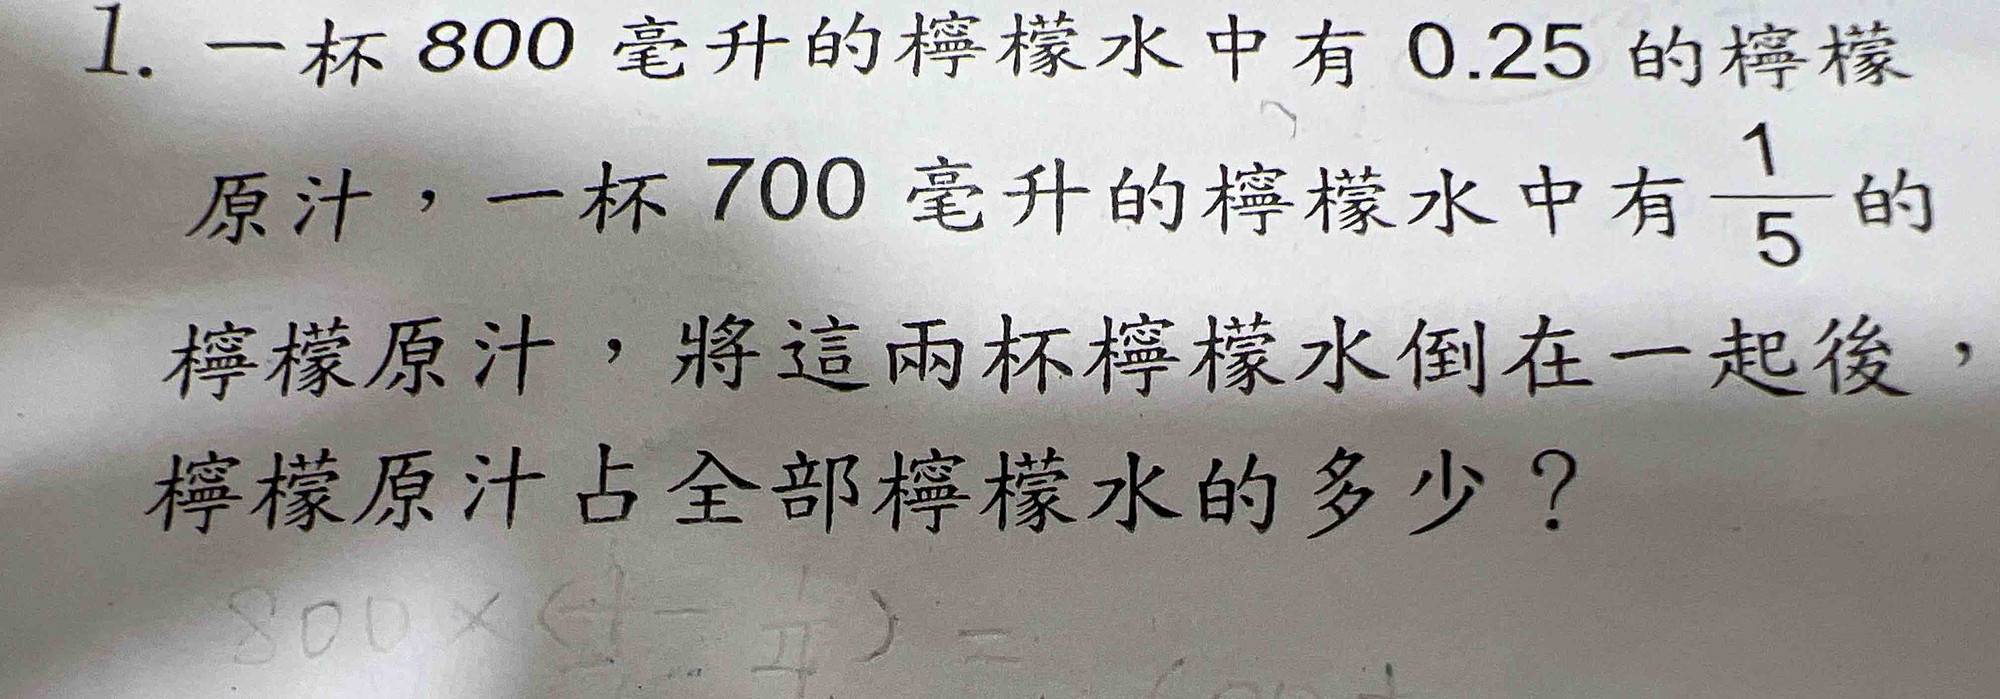 1. 一杯 800 毫升的檸檬水中有 0.25 的檸檬
原汁，一杯 700 毫升的檸檬水中有 1/5 的
檸檬原汁，將這兩杯檸檬水倒在一起後，
檸檬原汁占全部檸檬水的多少？
800 × ( - ) =